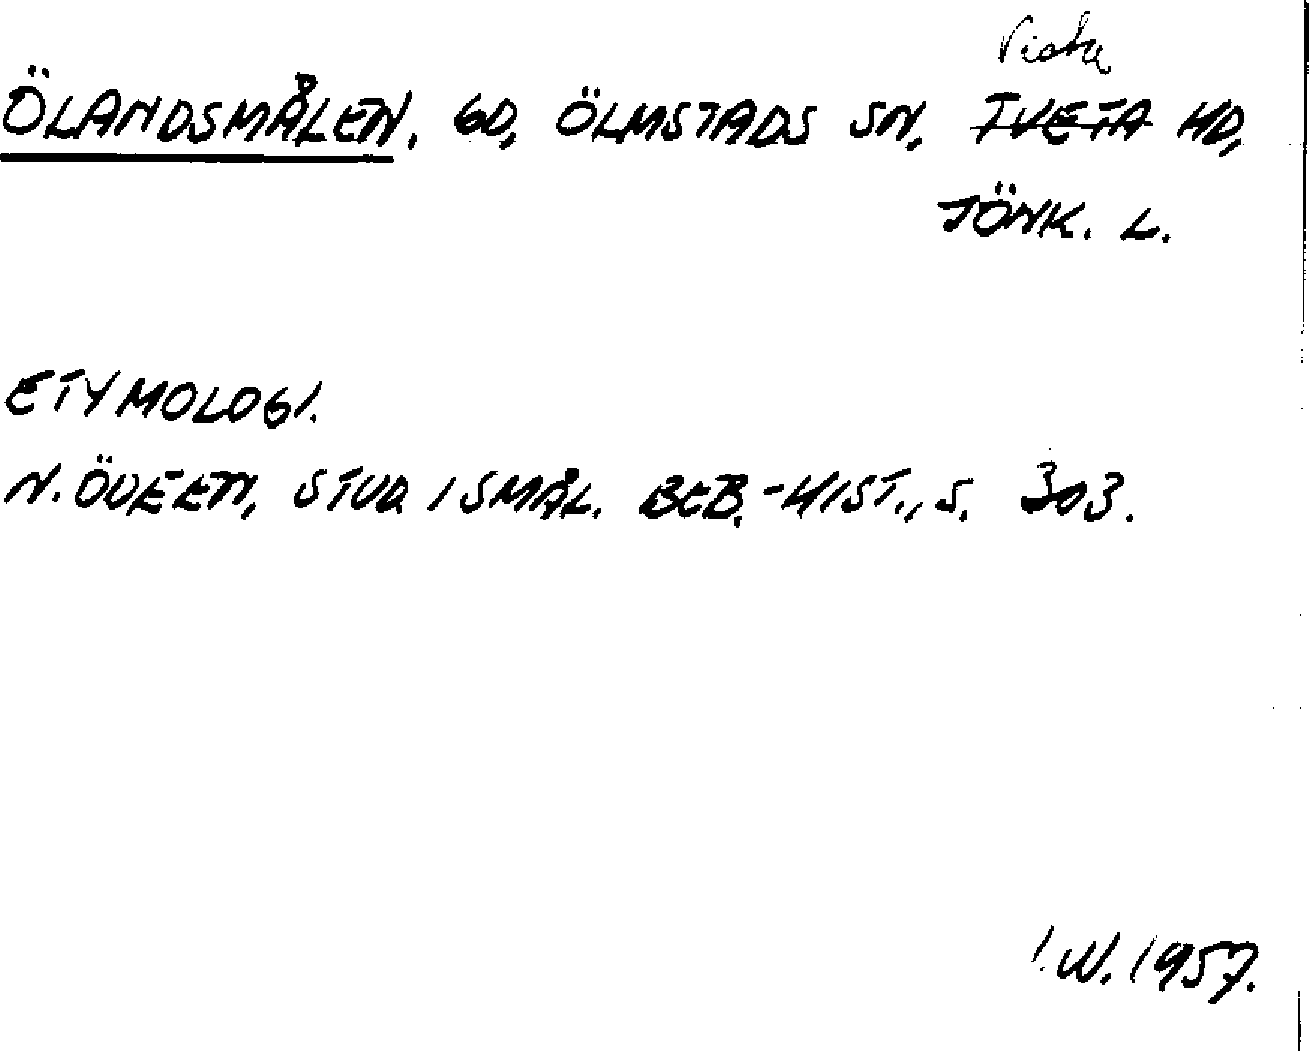 Vista
ÖLANDSMÅLEN. GD, ÖLMSTADS SN, TVETA HD,
JÖNK. L.
ETYMOLOGI.
N. ÖDEEN, STUD. I SMÅL. BEB.-HIST., S. 303.
I.W. 1957.